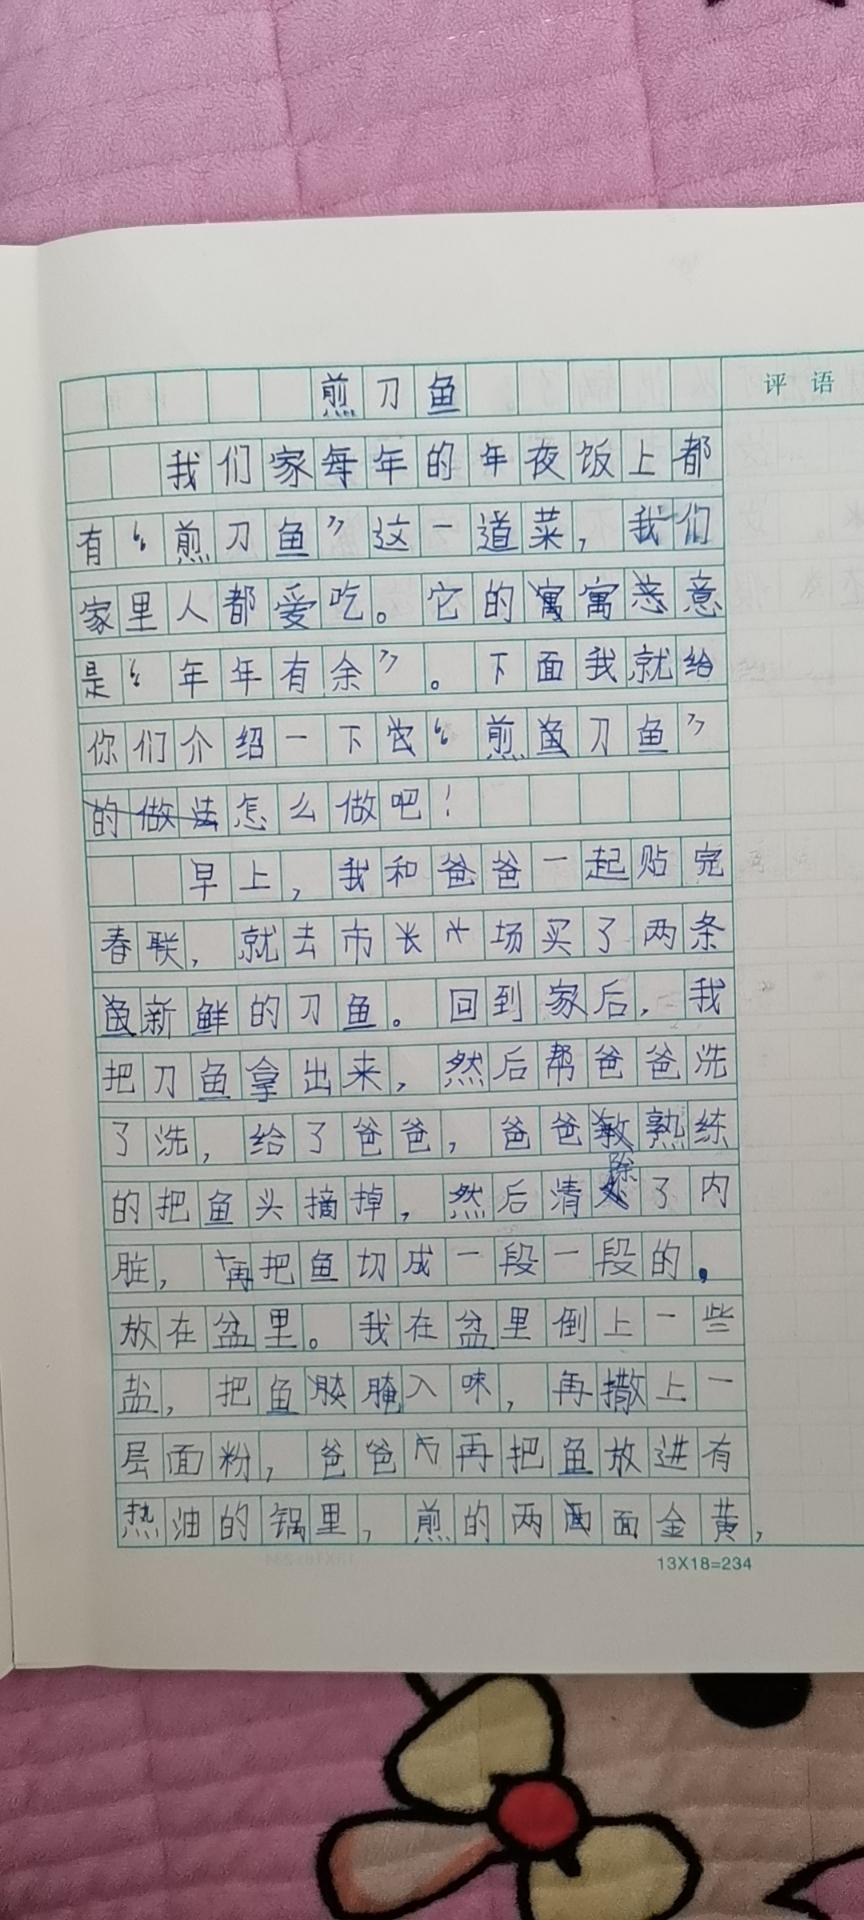 煎刀鱼
评语
我们家每年的年夜饭上都
有“煎刀鱼”这一道菜，我们
家里人都爱吃。它的寓意
是“年年有余”。下面我就给
你们介绍一下“煎刀鱼”
怎么做吧！
早上，我和爸爸一起贴完
春联，就去市场买了两条
新鲜的刀鱼。回到家后，我
把刀鱼拿出来，然后帮爸爸洗
了洗，给了爸爸，爸爸熟练
的把鱼头摘掉，然后清除了内
脏，再把鱼切成一段一段的，
放在盆里。我在盆里倒上一些
盐，把鱼腌入味，再撒上一
层面粉，爸爸再把鱼放进有
热油的锅里，煎的两面金黄，
13X18=234